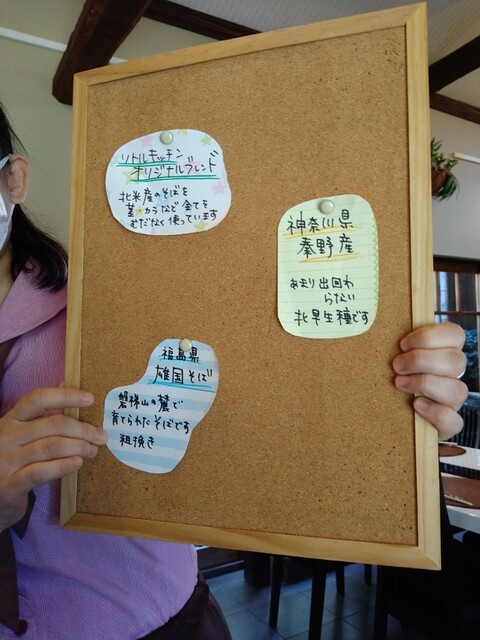 リトルキッチン
オリジナルブレンド
北米産のそばを
茎・カラなど全てを
むだなく使っています
神奈川県
秦野産
あまり出回わ
らない
北早生種です
福島県
雄国そば
磐梯山の麓で
育てられたそばです
粗挽き